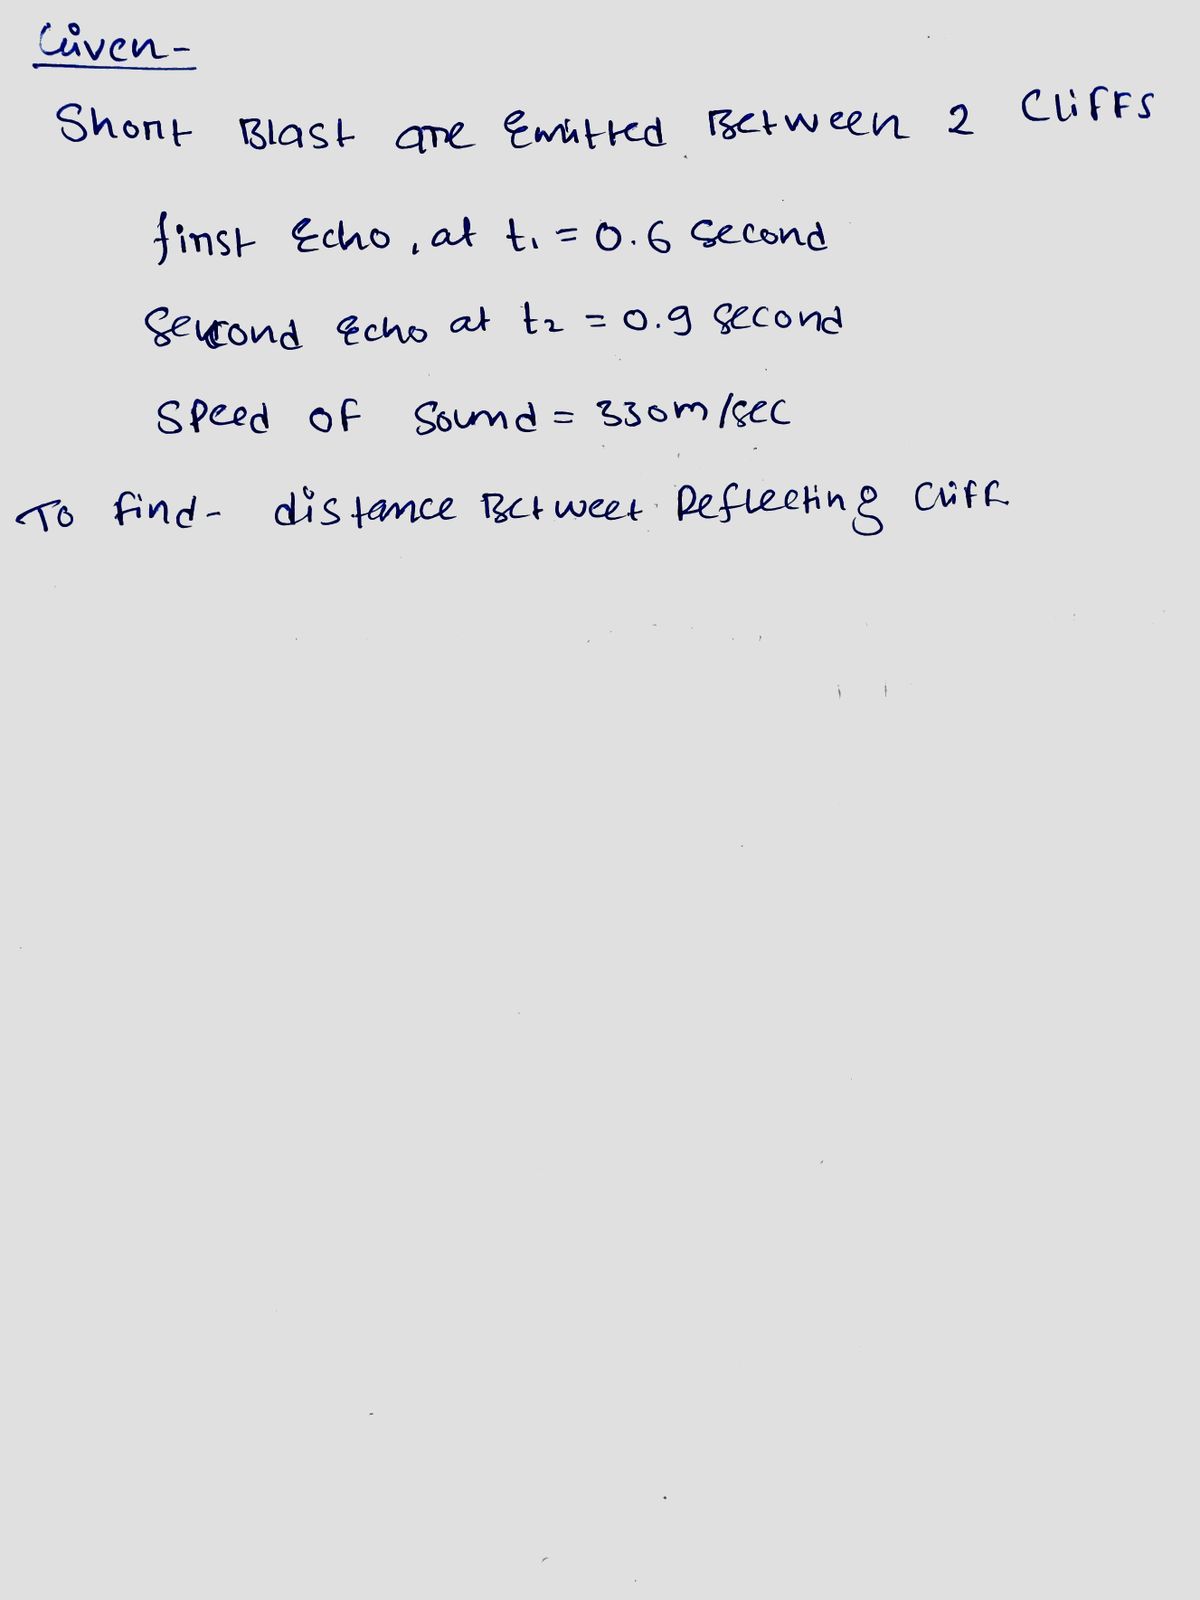 Given-
Short Blast are Emitted Between 2 Cliffs
first Echo, at t₁ = 0.6 second
Second Echo at t₂ = 0.9 second
Speed of Sound = 330m/sec
To find- distance Betweet Reflecting Cliff